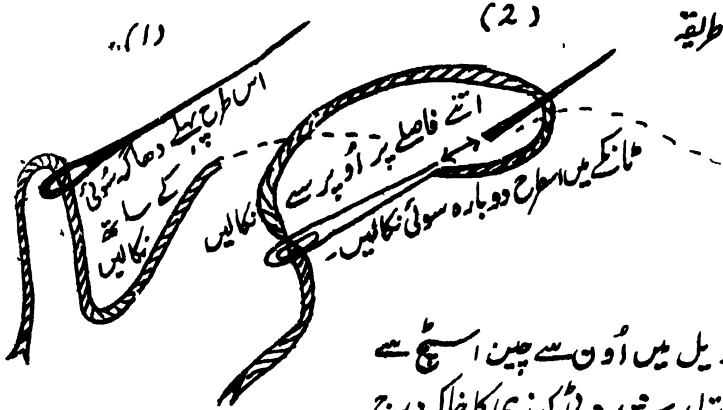 طریقہ
(1)
(2)
اس طرح پہلے دھاگہ سوئی
کے ساتھ
نکالیں
اتنے فاصلے پر اُوپر سے
نکالیں
ٹانکے میں اسطرح دوبارہ سوئی نکالیں۔
میں اُون سے چین اسٹچ سے
کا خاکہ درج